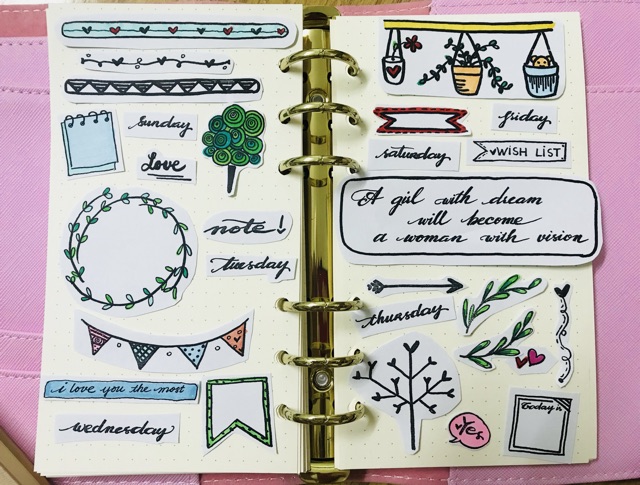 sunday
Love
note!
tuesday
i love you the most
wednesday
friday
saturday
WISH LIST
A girl with dream
will become
a woman with vision
thursday
Yes
Today is